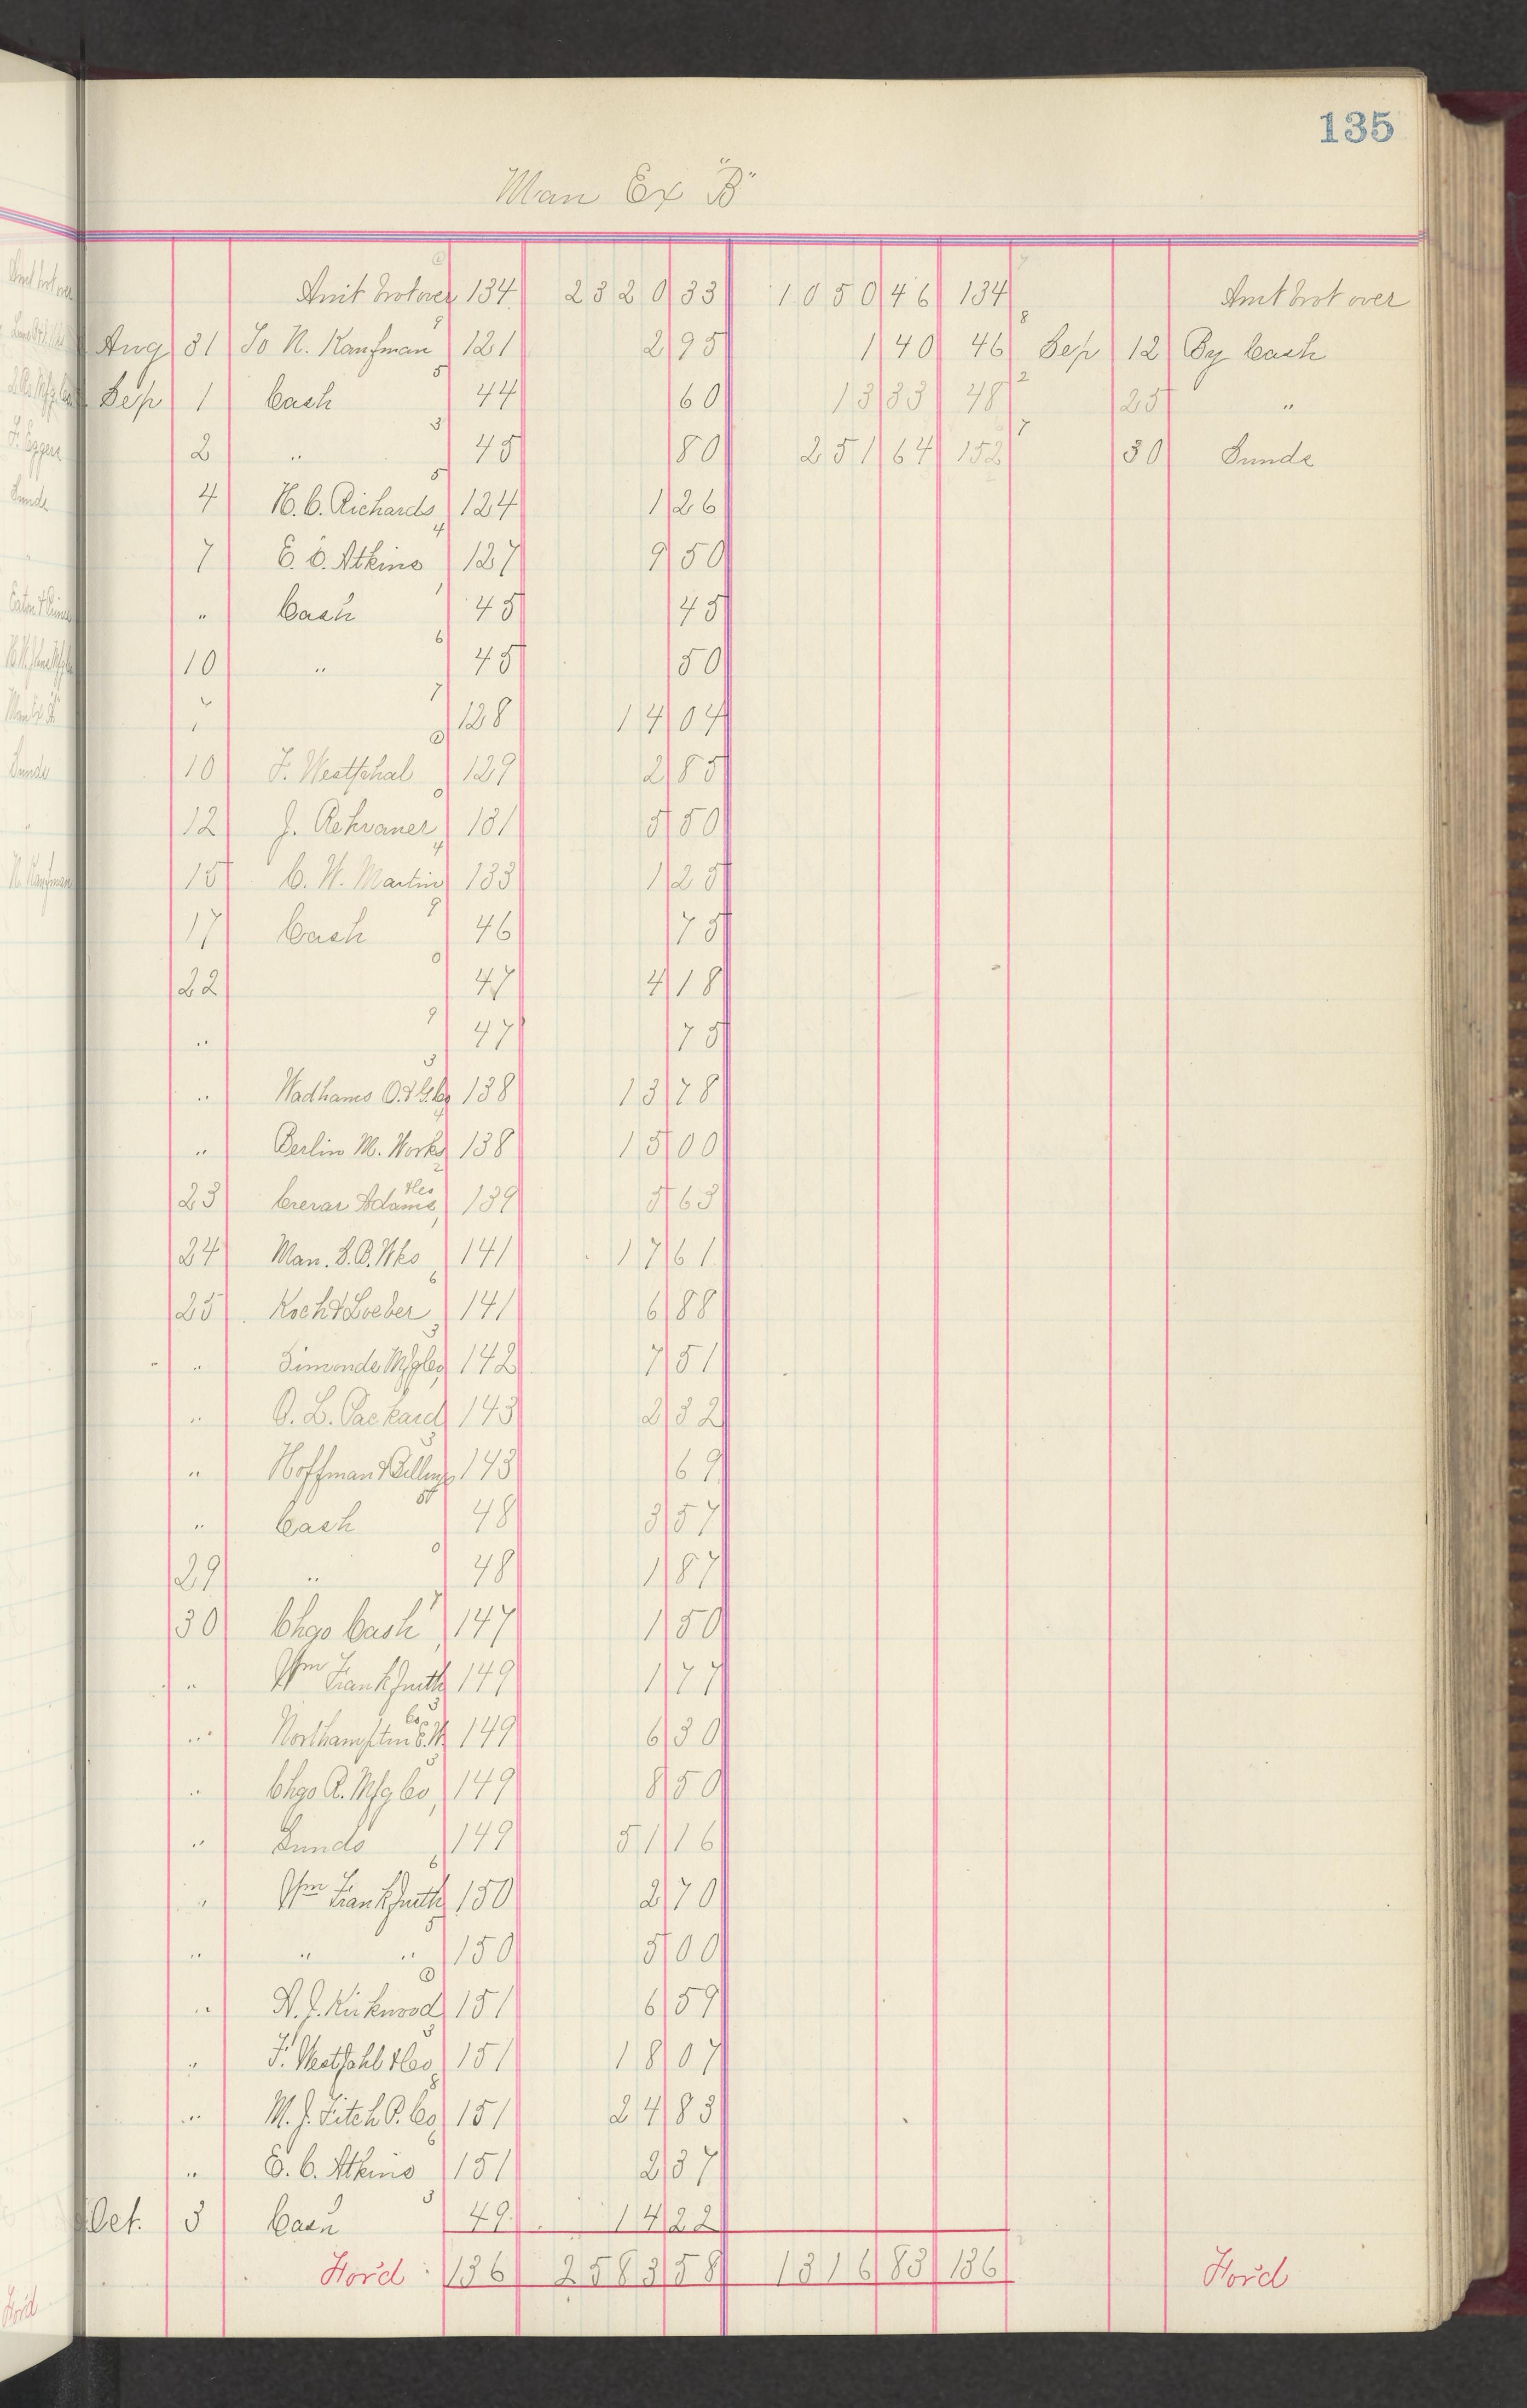 135
Man Ex "B"
Amt brot over 134 2320 33 1050 46 134 Amt brot over
Aug 31 To N. Kaufman 121 2 95 1 40 46 Sep 12 By Cash
Sep 1 Cash 44 60 13 33 48 25 "
2 " 45 80 251 64 152 30 Sunds
4 H. C. Richards 124 1 26
7 E. C. Atkins 127 9 50
" Cash 45 45
10 " 45 50
" 128 14 04
10 F. Westphal 129 2 85
12 J. 131 5 50
15 C. H. Martin 133 1 25
17 Cash 46 75
22 47 4 18
" 47 75
" Wadhams O. & G. Co 138 13 78
" Berlin M. Works 138 15 00
23 Crerar Adams &Co 139 5 63
24 Man. S. B. Wks 141 17 61
25 Koch & Loeber 141 6 88
" Simonds Mfg Co 142 7 51
" O. L. Packard 143 2 32
" Hoffman & Billings 143 69
" Cash 48 3 57
29 " 48 1 87
30 Chgo Cash 147 1 50
" Wm Frankfurth 149 1 77
" Northampton E. W. Co 149 6 30
" Chgo R. Mfg Co 149 8 50
" Sunds 149 51 16
" Wm Frankfurth 150 2 70
" " " 150 5 00
" A. J. Kirkwood 151 6 59
" F. Westfahl & Co 151 18 07
" M. J. Fitch P. Co 151 24 83
" E. C. Atkins 151 2 37
Oct. 3 Cash 49 14 22
For'd 136 2583 58 1316 83 136 For'd